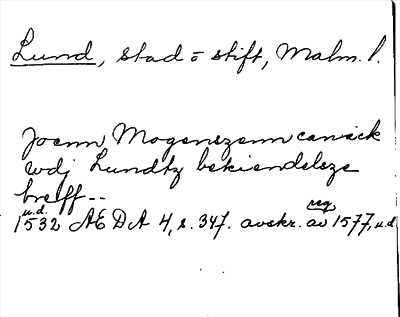 Lund, stad o stift, Malm. l.
Joenn Mogenszenn canick
wdj Lundtz bekiendelsze
breff--
u.d. reg
1532 AEDA 4, s. 347. avskr. av 1577, u.d.